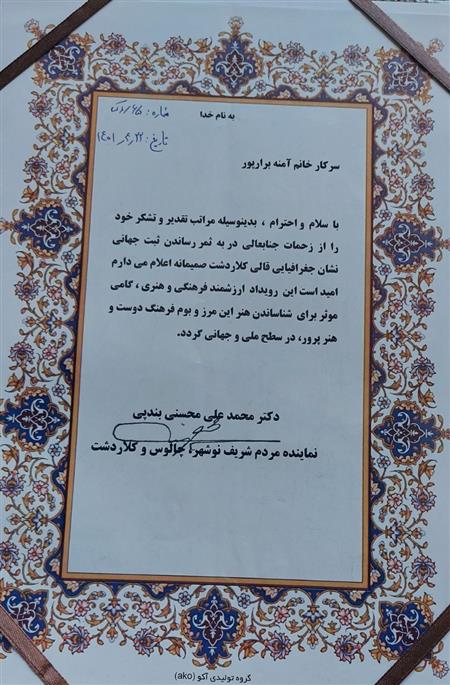 به نام خدا
شماره:
تاریخ:
سرکار خانم آمنه برارپور
با سلام و احترام ، بدینوسیله مراتب تقدیر و تشکر خود
را از زحمات جنابعالی در به ثمر رساندن ثبت جهانی
نشان جغرافیایی قالی کلاردشت صمیمانه اعلام می دارم
امید است این رویداد ارزشمند فرهنگی و هنری ، گامی
موثر برای شناساندن هنر این مرز و بوم فرهنگ دوست و
هنر پرور، در سطح ملی و جهانی گردد.
دکتر محمد علی محسنی بندپی
نماینده مردم شریف نوشهر، چالوس و کلاردشت
گروه تولیدی آکو (ako)